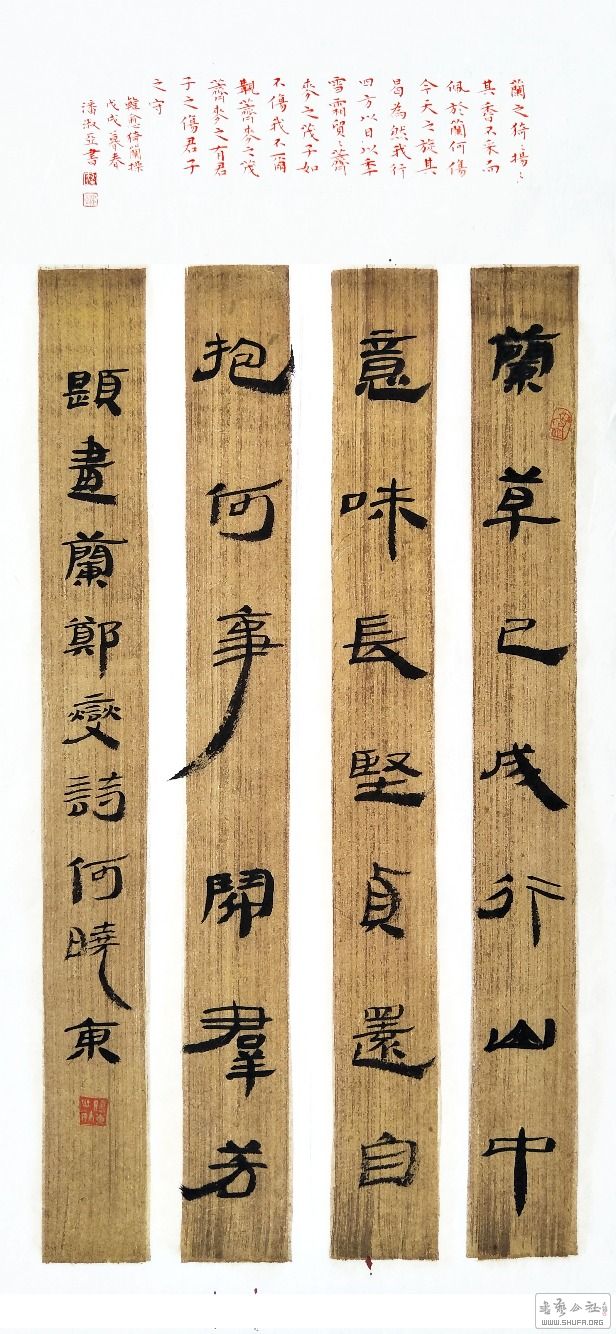 蘭之倚〻揚〻
其香不采而
佩於蘭何傷
今天之旋其
曷為然我行
四方以日以秊
雪霜貿〻薺
麥之茂子如
不傷我不爾
覯薺麥之茂
薺麥之有君
子之傷君子
之守
韓愈倚蘭操
戊戌暮春
潘淑亞書
蘭草已成行山中
意味長堅貞還自
抱何事鬧羣芳
題畫蘭鄭燮詩何曉東
書藝公社
WWW.SHUFA.ORG